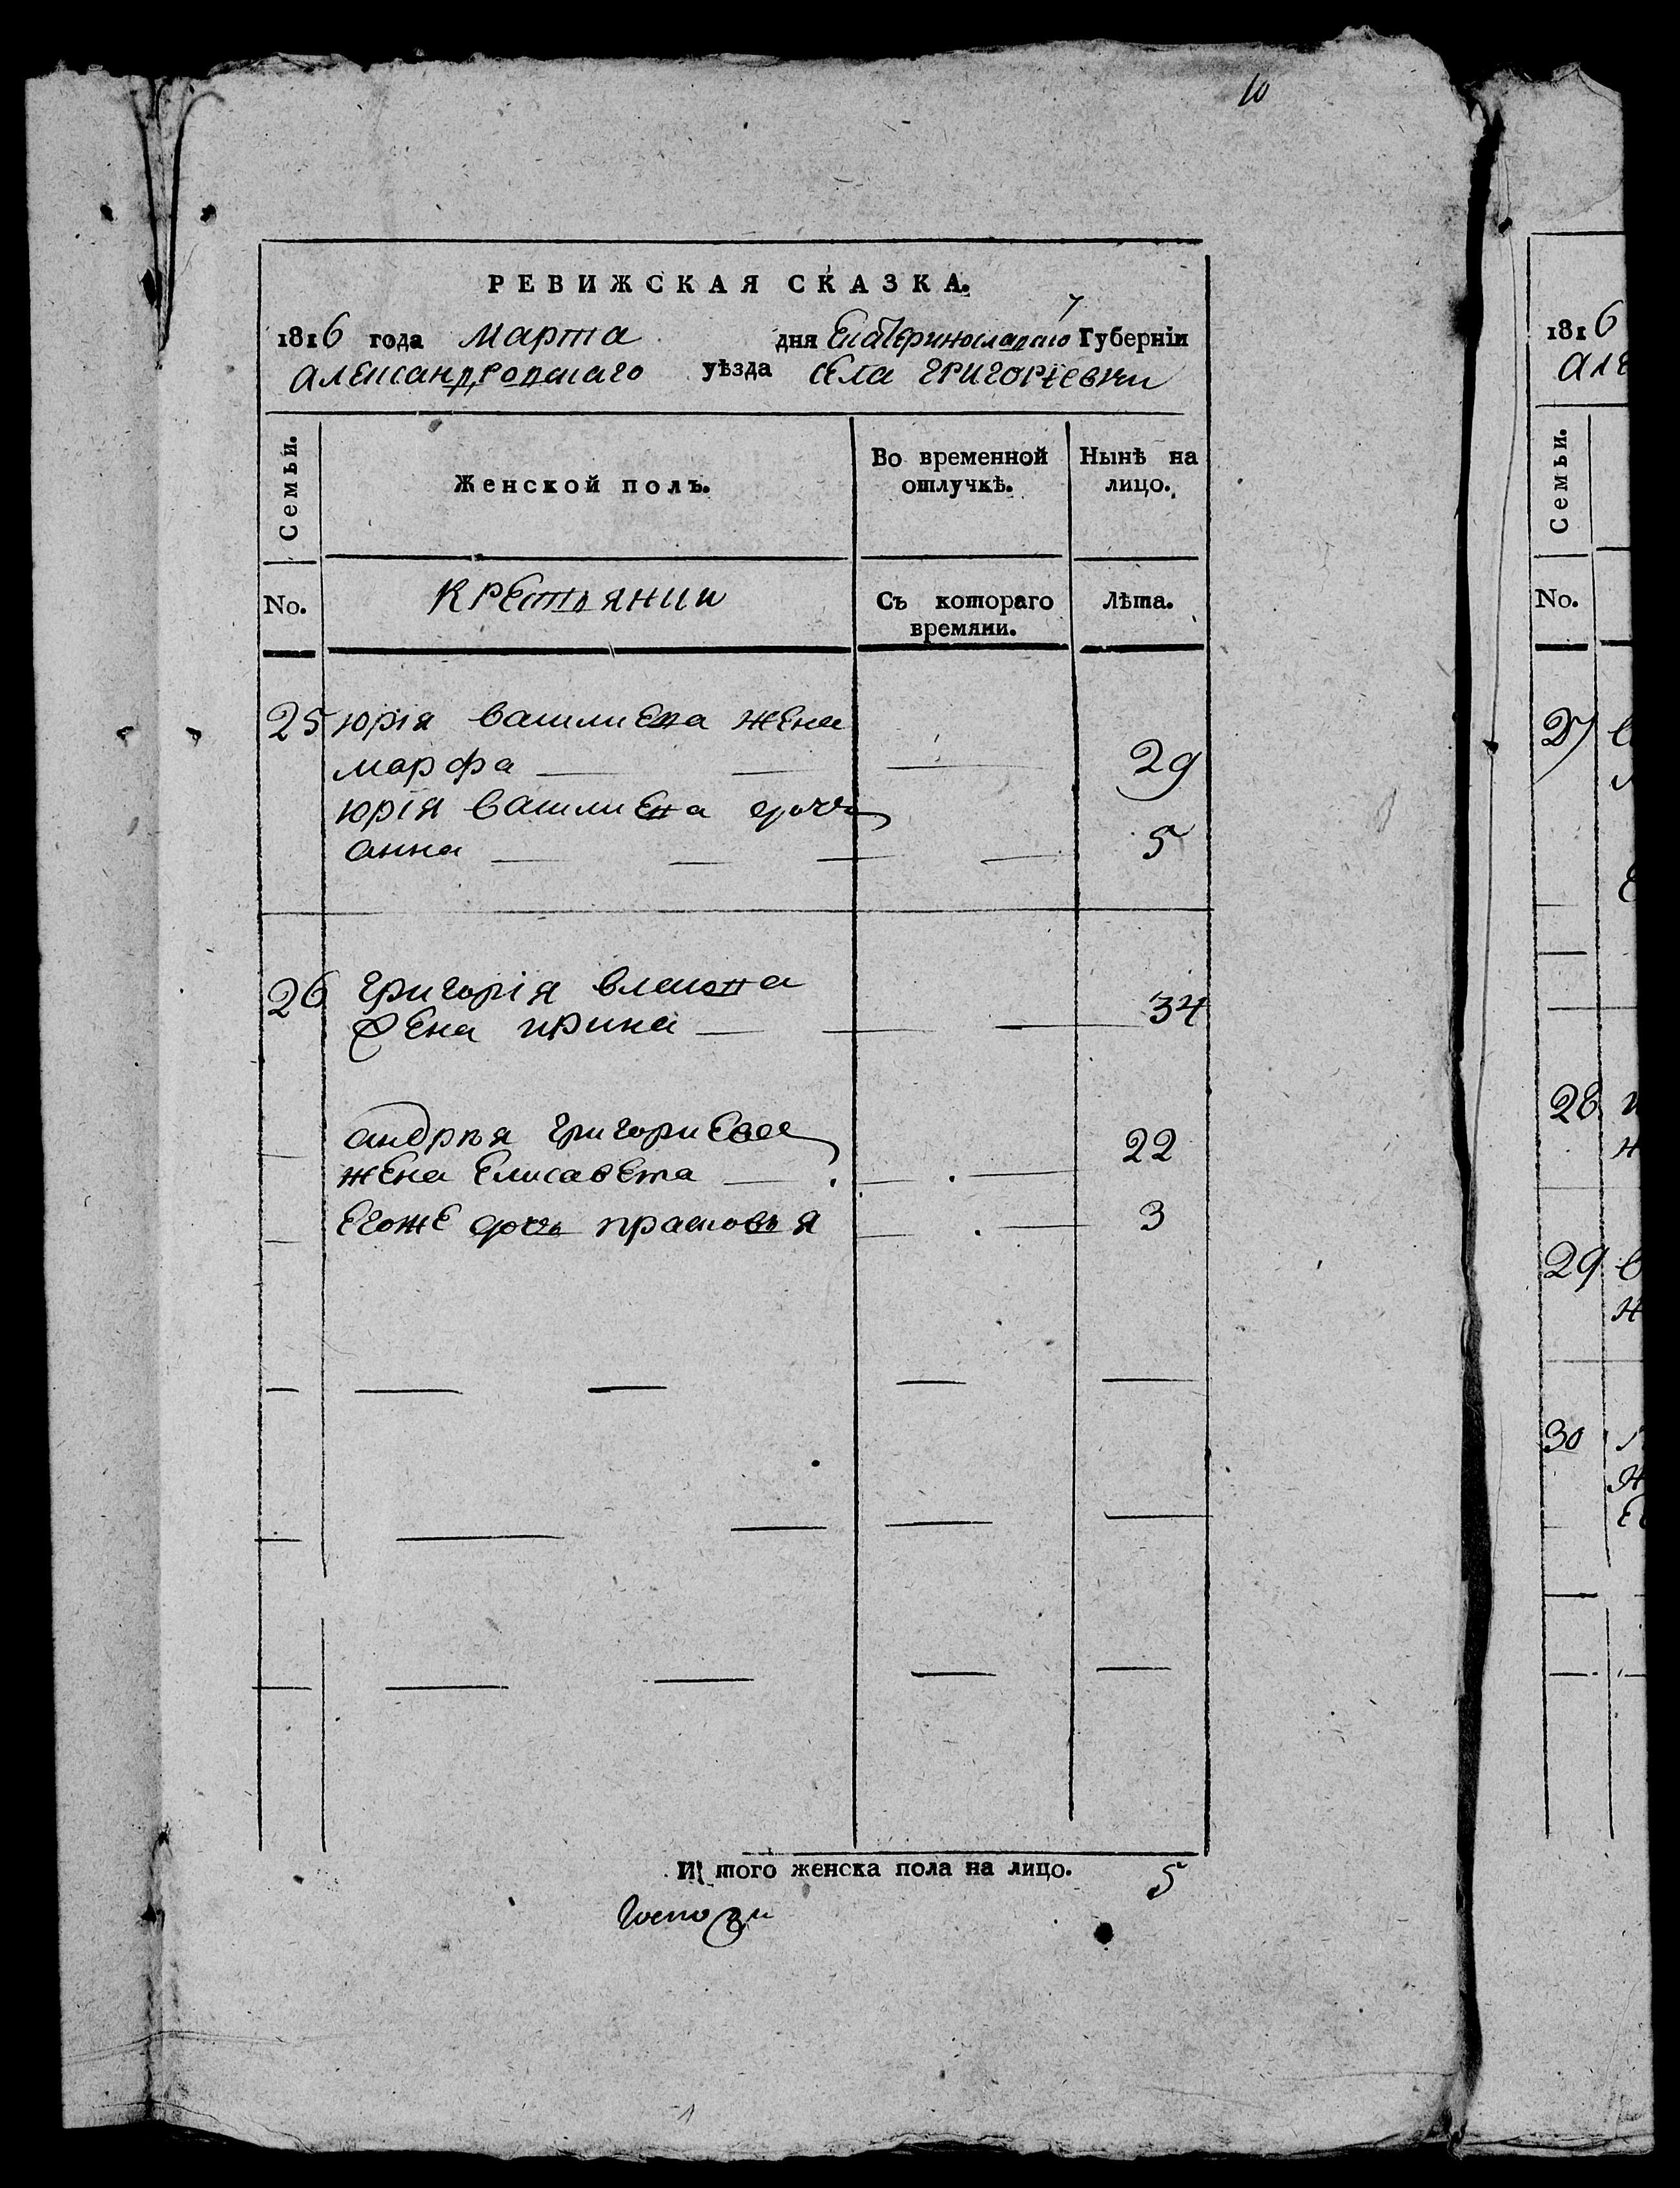 10
РЕВИЖСКАЯ СКАЗКА.
1816 года Марта дня Екатеринославской Губерніи
Александровскаго уѣзда села Григоріевки
Семьи.
Женской полъ.
Во временной отлучкѣ.
Нынѣ на лицо.
No.
Крестьянки
Съ котораго времяни.
Лѣта.
25 юрія василиева жена
марфа 29
юрія василиева дочь
анна 5
26 григорія власова
жена ирина 34
андрѣя григориева
жена Елисавета 22
Егоже дочь прасковья 3
И того женска пола на лицо. 5
1816
Але
Семьи.
No.
27
28
29
30